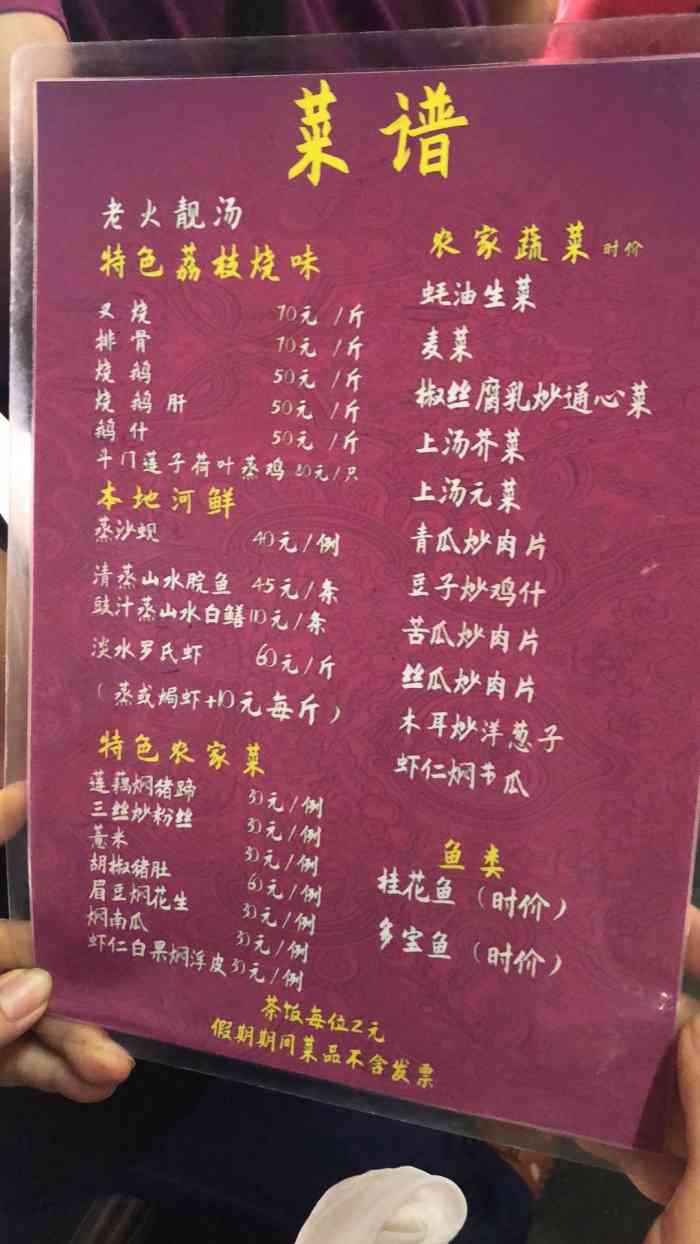 菜谱
老火靓汤
特色荔枝烧味
叉烧 70元/斤
排骨 70元/斤
烧鹅 50元/斤
烧鹅肝 50元/斤
鹅什 50元/斤
斗门莲子荷叶蒸鸡 80元/只
本地河鲜
蒸沙蚬 40元/例
清蒸山水脘鱼 45元/条
豉汁蒸山水白鳝 110元/条
淡水罗氏虾 60元/斤
（蒸或焗虾+10元每斤）
特色农家菜
莲藕焖猪蹄 30元/例
三丝炒粉丝 30元/例
薏米胡椒猪肚 30元/例
眉豆焖花生 60元/例
焖南瓜 30元/例
虾仁白果焖浮皮 30元/例
农家蔬菜 时价
蚝油生菜
麦菜
椒丝腐乳炒通心菜
上汤芥菜
上汤元菜
青瓜炒肉片
豆子炒鸡什
苦瓜炒肉片
丝瓜炒肉片
木耳炒洋葱子
虾仁焖节瓜
鱼类
桂花鱼（时价）
多宝鱼（时价）
茶饭每位2元
假期期间菜品不含发票